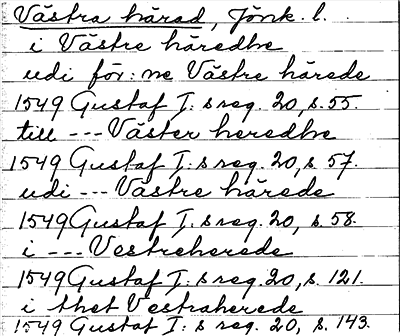 Västra härad, Jönk. l.
i Västre häredhe
udi för: ne Västre härede
1549 Gustaf I: s reg. 20, s. 55.
till --- Väster heredhe
1549 Gustaf I: s reg. 20, s. 57.
udi --- Västre härede
1549 Gustaf I, s reg. 20, s. 58.
i --- Vestreherede
1549 Gustaf I: s reg. 20, s. 121.
i thet Vestraherede
1549 Gustaf I: s reg. 20, s. 143.